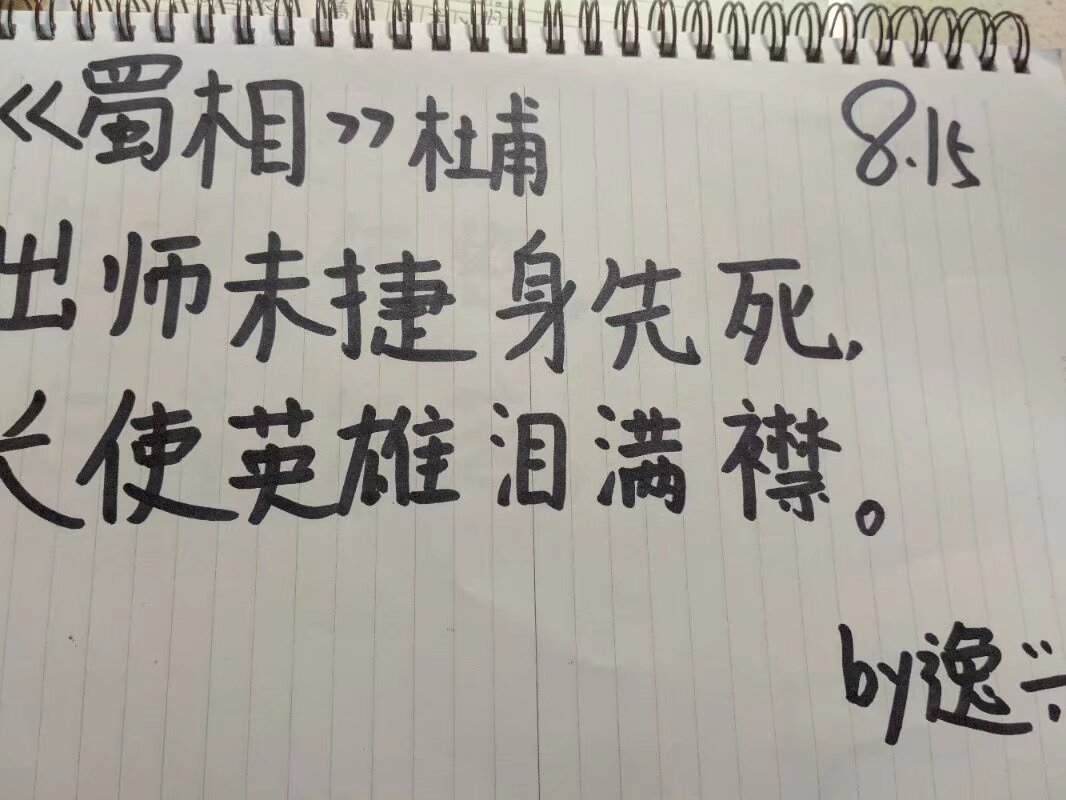 《蜀相》杜甫 8.15
出师未捷身先死,
长使英雄泪满襟。
by逸兴